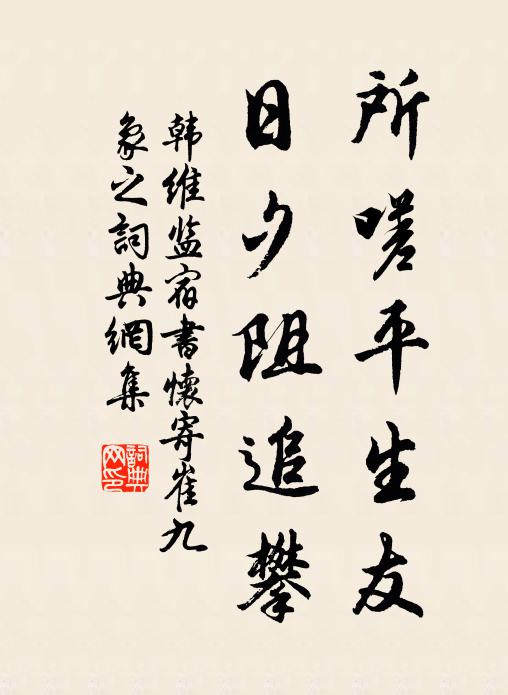 所嗟平生友
日夕阻追攀
韩维监宿書懷寄崔九
象之詞典網集
詞典
网印